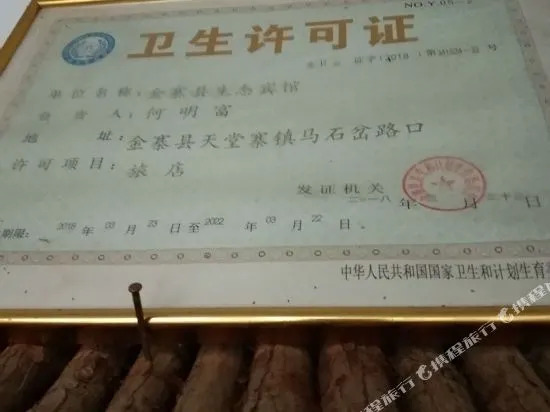 NO.Y.05-
卫生许可证
字（2018）第 号
单位名称：金寨县朱备宾馆
负责人：何明富
地 址：金寨县天堂寨镇马石岔路口
许可项目：旅店
发证机关
二〇一八年 月 二十三日
期限：2018年03月23日至2022年03月22日
中华人民共和国国家卫生和计划生育
携程旅行